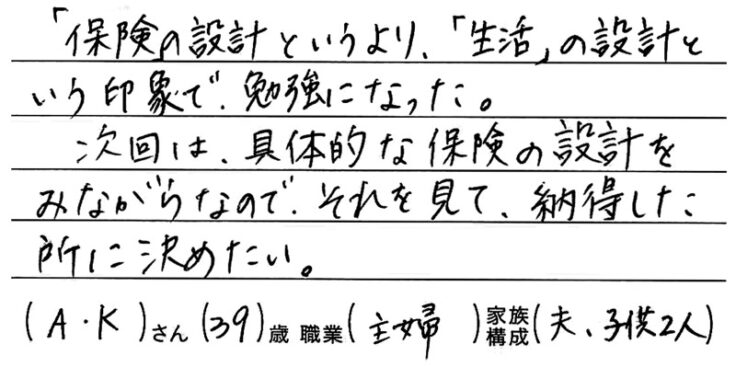 「保険」の設計というより、「生活」の設計と
いう印象で、勉強になった。
次回は、具体的な保険の設計を
みながらなので、それを見て、納得した
所に決めたい。
(A・K)さん(39)歳 職業(主婦)家族構成(夫、子供2人)